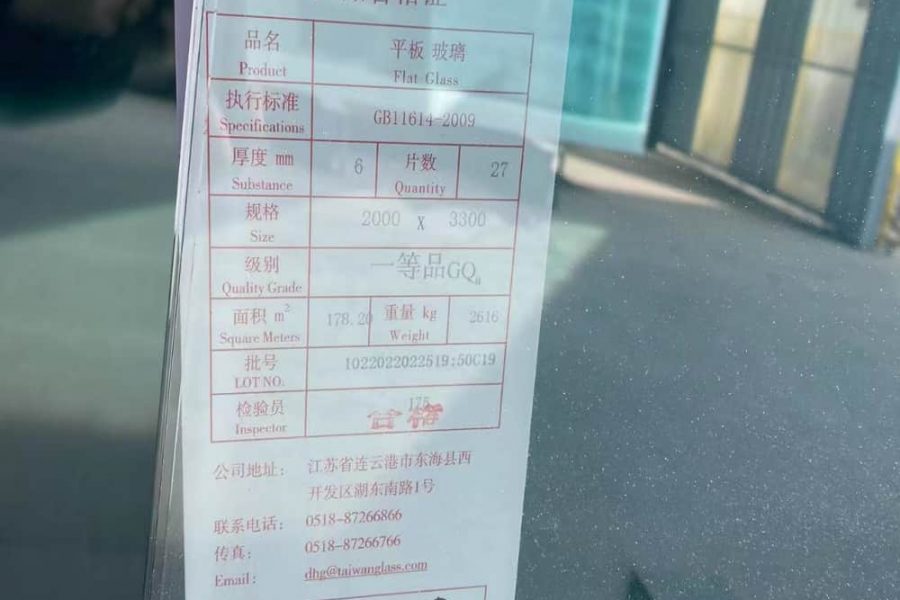 合格证
品名 平板 玻璃
Product Flat Glass
执行标准 GB11614-2009
Specifications
厚度 mm 6 片数 27
Substance Quantity
规格 2000 X 3300
Size
级别 一等品GQ
Quality Grade
面积 m² 178.20 重量 kg 2616
Square Meters Weight
批号 1022022022519:50C19
LOT NO.
检验员 175
Inspector 合格
公司地址: 江苏省连云港市东海县西
开发区湖东南路1号
联系电话: 0518-87266866
传真: 0518-87266766
Email: dhg@taiwanglass.com